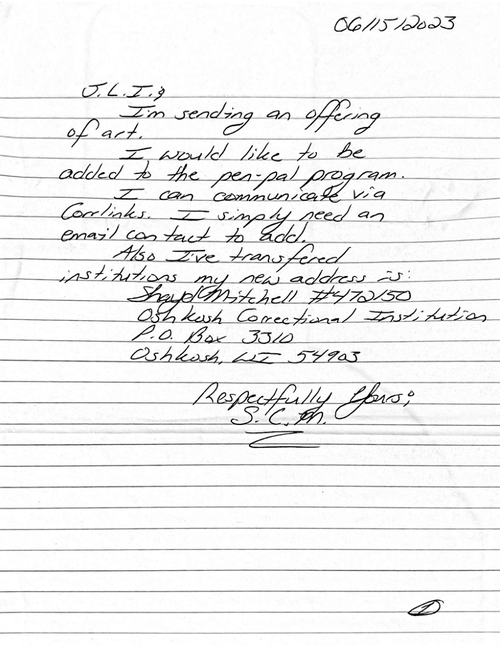 06/15/2023
J.L.I.,
I'm sending an offering
of art.
I would like to be
added to the pen-pal program.
I can communicate via
Corrlinks. I simply need an
email contact to add.
Also I've transfered
institutions my new address is:
Mitchell #472150
Oshkosh Correctional Institution
P.O. Box 3310
Oshkosh, WI 54903
Respectfully Yours;
S.C.M.
1